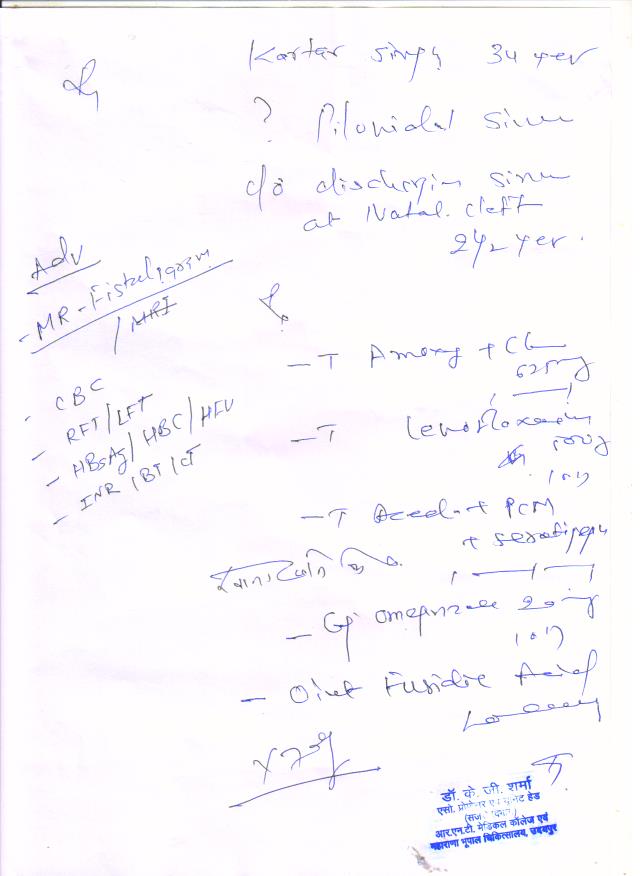 Kartar Singh 34 yer
? Pilonidal Sinus
c/o discharging sinus
at Natal cleft
2 1/2 yer.
Adv
- MR - Fistulogram
/ MRI
- CBC
- RFT / LFT
- HBsAg / HBC / HIV
- INR / BT / CT
- T Amoxy + CL
625mg
- T Levofloxacin
500g
- T Aced + PCM
+ serratiopep
- Cap omeprazole 20mg
- Oint Fusidic Acid
x 7
डॉ. के. जी. शर्मा
एसो. प्रोफेसर एवं यूनिट हेड
आर.एन.टी. मेडिकल कॉलेज एवं
महाराणा भूपाल चिकित्सालय, उदयपुर